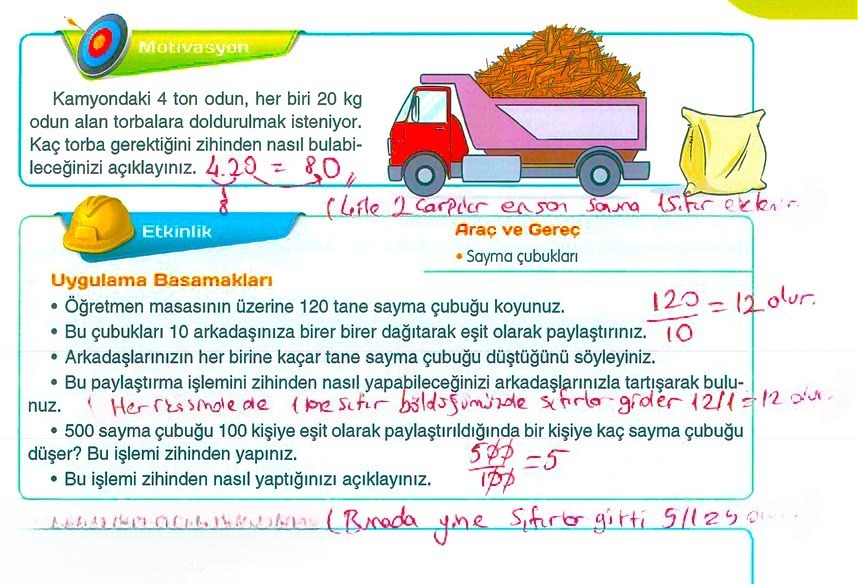 Motivasyon
Kamyondaki 4 ton odun, her biri 20 kg
odun alan torbalara doldurulmak isteniyor.
Kaç torba gerektiğini zihinden nasıl bulabi-
leceğinizi açıklayınız. 4.20 = 80
8
(4 ile 2 çarpılır en son sonuna 1 sıfır eklenir
Etkinlik
Araç ve Gereç
• Sayma çubukları
Uygulama Basamakları
• Öğretmen masasının üzerine 120 tane sayma çubuğu koyunuz.
120/10 = 12 olur.
• Bu çubukları 10 arkadaşınıza birer birer dağıtarak eşit olarak paylaştırınız.
• Arkadaşlarınızın her birine kaçar tane sayma çubuğu düştüğünü söyleyiniz.
• Bu paylaştırma işlemini zihinden nasıl yapabileceğinizi arkadaşlarınızla tartışarak bulu-
nuz. ( Her ikisinde de 1 tane sıfır böldüğümüzde sıfırlar gider 12/1 = 12 olur.
• 500 sayma çubuğu 100 kişiye eşit olarak paylaştırıldığında bir kişiye kaç sayma çubuğu
düşer? Bu işlemi zihinden yapınız. 500/100 = 5
• Bu işlemi zihinden nasıl yaptığınızı açıklayınız.
( Burada yine Sıfırlar gitti 5/1 = 5